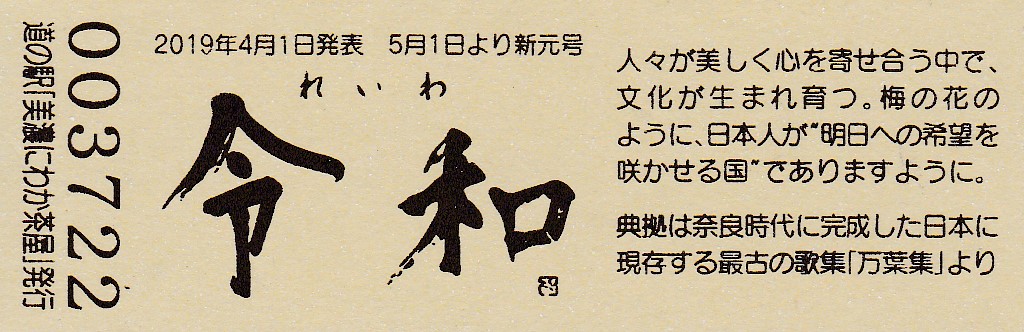 003722
道の駅「美濃にわか茶屋」発行
2019年4月1日発表　5月1日より新元号
れいわ
令和
人々が美しく心を寄せ合う中で、
文化が生まれ育つ。梅の花の
ように、日本人が"明日への希望を
咲かせる国"でありますように。
典拠は奈良時代に完成した日本に
現存する最古の歌集「万葉集」より